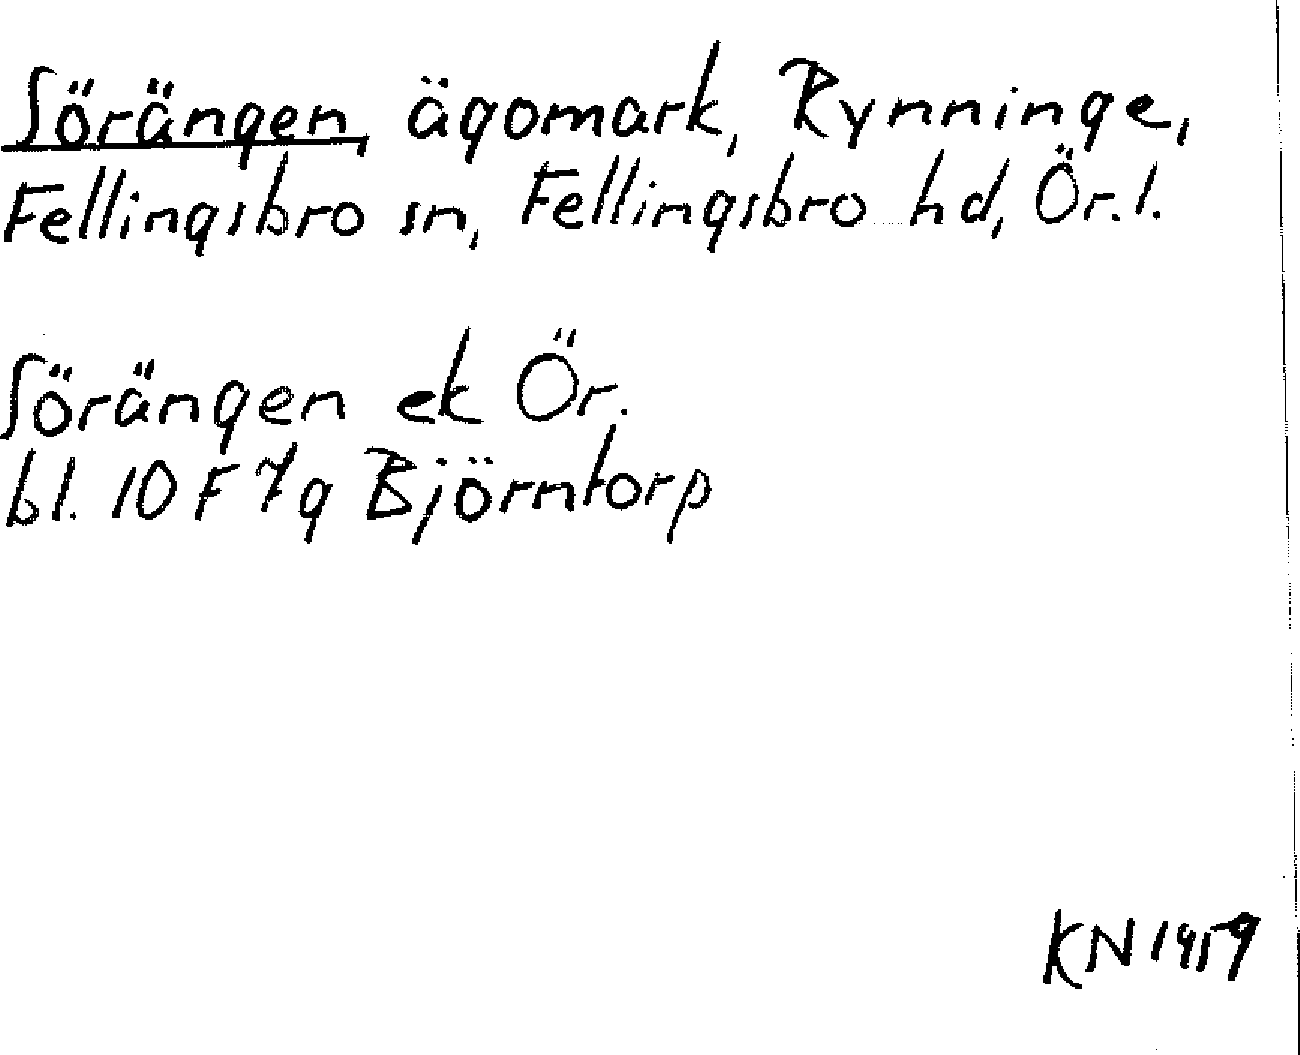 Sörängen, ägomark, Rynninge,
Fellingsbro sn, Fellingsbro hd, Ör. l.
Sörängen ek Ör.
bl. 10 F 7g Björntorp
KN 1959